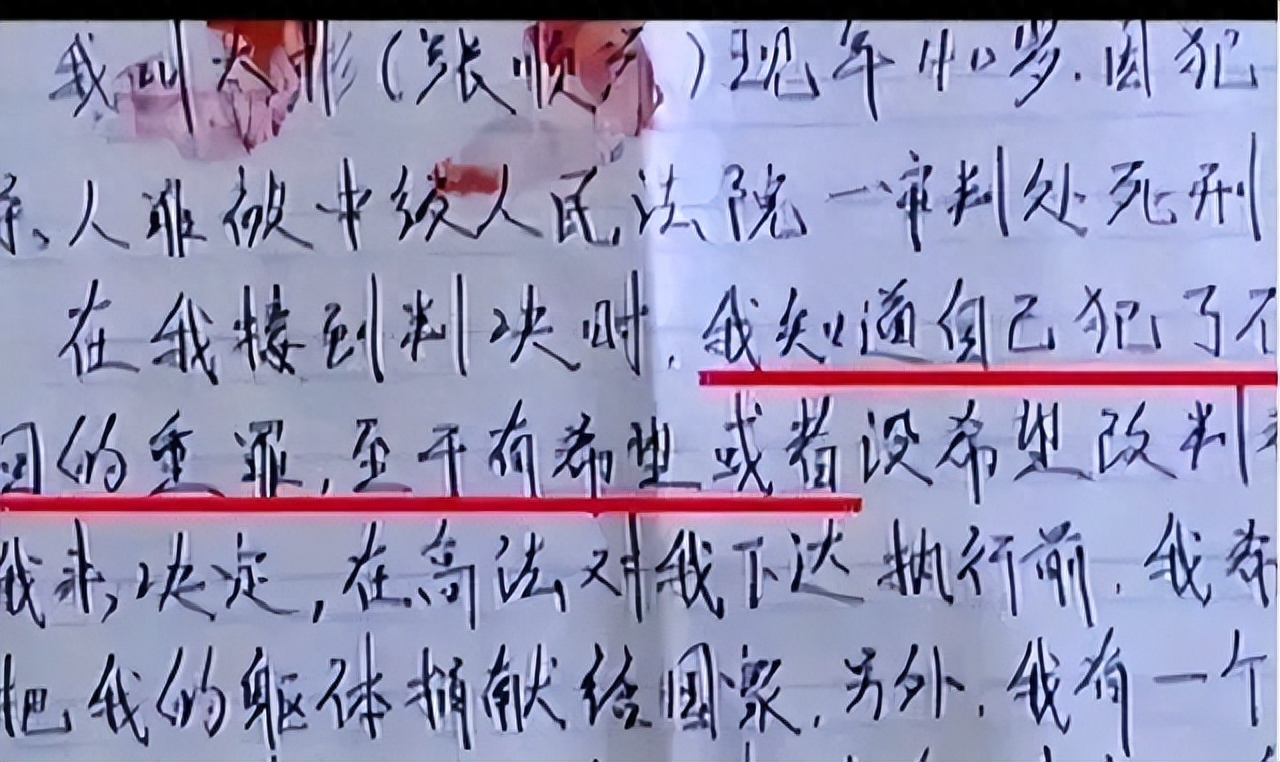 我叫大彤(张顺)现年40岁.因犯
人罪被中级人民法院一审判处死刑
在我接到判决时,我知道自己犯了不
的重罪,至于有希望或者没希望改判
我来决定,在高法对我下达执行前.我希
把我的躯体捐献给国家.另外.我有一个